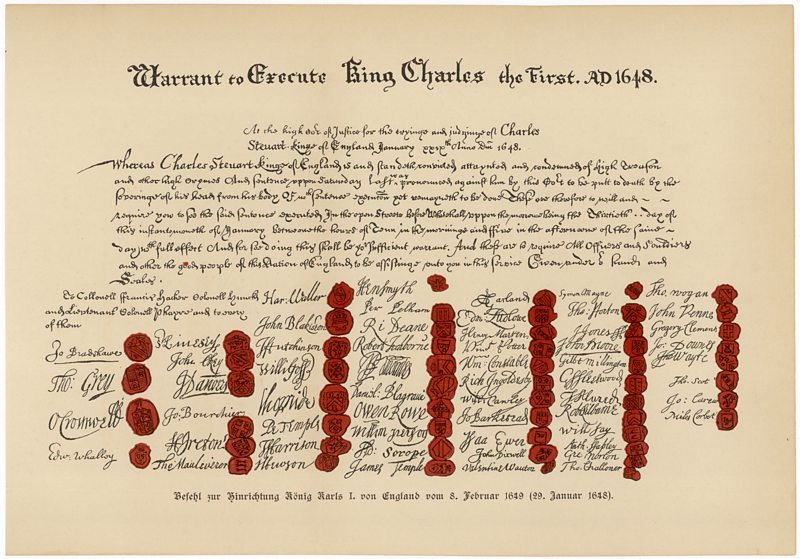 Warrant to Execute King Charles the First. AD 1648.
At the high Co:rt of Justice for the tryinge and judginge of Charles
Steuart kinge of England January xxixth Anno Dni 1648.
Whereas Charles Steuart kinge of England is and standeth convicted attaynted and condemned of High Treason
and other high Crymes And sentence uppon Saturday last was pronounced against him by this Co:rt to be putt to death by the
severinge of his head from his body Of wch sentence execution yet remayneth to be done These are therefore to will and
require you to see the said sentence executed In the open Streete before Whitehall uppon the morrowe being the Thirtieth day of
this instant moneth of January Betweene the houres of Tenn in the morninge and ffive in the afternoone of the same
day with full effect And for soe doing this shall be yor sufficient warrant. And these are to require All Officers and Souldiers
and other the good people of this Nation of England to be assistinge unto you in this service Given under or hands and
Seales.
To Collonell ffrancis Hacker Colonell Huncks
and Lieutenant Colonell Phayre and to every
of them
Jo Bradshawe
Tho: Grey
O Cromwell
Edw: Whalley
John Okey
J Danvers
Jo: Bourchier
H Ireton
Tho Mauleverer
Har: Waller
John Blakiston
J Hutchinson
Willi Goff
Pe Temple
T Harrison
J Hewson
Hen Smyth
Per Pelham
Ri Deane
Robert Tichborne
Daniel Blagrave
Owen Rowe
William Purfoy
Ad: Scrope
James Temple
A Garland
Edm: Ludlowe
Henry Marten
Vint Potter
Wm: Constable
Rich Ingoldesby
Will Cawley
Jo Barkstead
Isaa Ewer
John Dixwell
Valentine Wauton
Symon Mayne
Tho: Horton
J Jones
John Moore
Gilbt Millington
G Fleetwood
J Alured
Robt Lilburne
Will Say
Anth Stapley
Gre Norton
Tho: Challoner
Tho: Wogan
John Venne
Gregory Clement
Jo: Downes
Tho Wayte
Tho: Scot
Jo: Carew
Miles Corbet
Befehl zur Hinrichtung König Karls I. von England vom 8. Februar 1649 (29. Januar 1648).